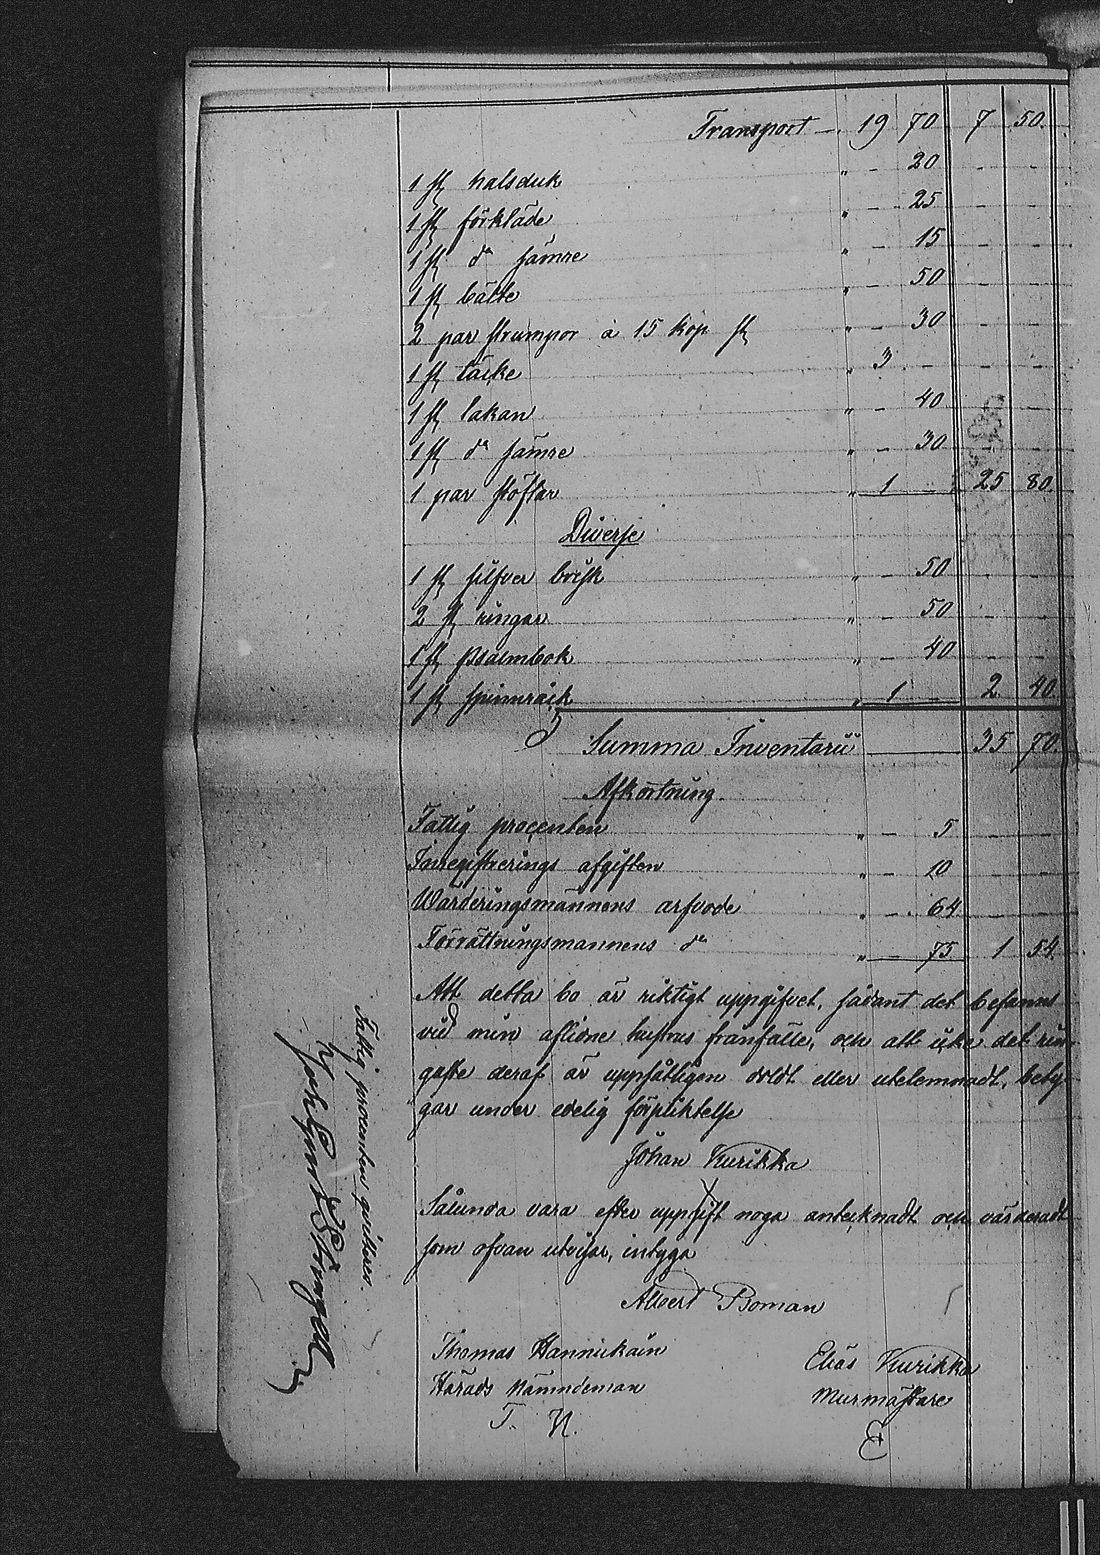 Transport — „ 19 70 7 50.
1 st halsduk „ — 20
1 st förkläde „ — 25
1 st do sämre „ — 15
1 st bälte „ — 50
2 par strumpor à 15 kop st „ — 30
1 st täcke „ 3 —
1 st lakan „ — 40
1 st do sämre „ — 30
1 par stöflar „ 1 — 25 80.
Diverse
1 st silfver brisk „ — 50
2 st ringar „ — 50
1 st psalmbok „ — 40
1 st spinnråck „ 1 — 2 40
Summa Inventarii 35 70.
Afkortning.
Fattig procenten „ — 5
Inregistrerings afgiften „ — 10
Wärderingsmännens arfvode „ — 64
Förrättningsmannens do „ — 75 1 54.
Att detta bo är riktigt uppgifvet, sådant det befanns
vid min aflidne hustrus frånfälle, och att icke det rin-
gaste deraf är uppsåtligen doldt eller utelemnadt, bety-
gar under edelig förpliktelse
Johan Kurikka
Sålunda vara efter uppgift noga antecknadt och värderadt
som ofvan utvisar, intyga
Albert Boman
Thomas Hannikain Elias Kurikka
Härads Nämndeman Murmästare
T. H. E
Fattig procenten qvitteras.